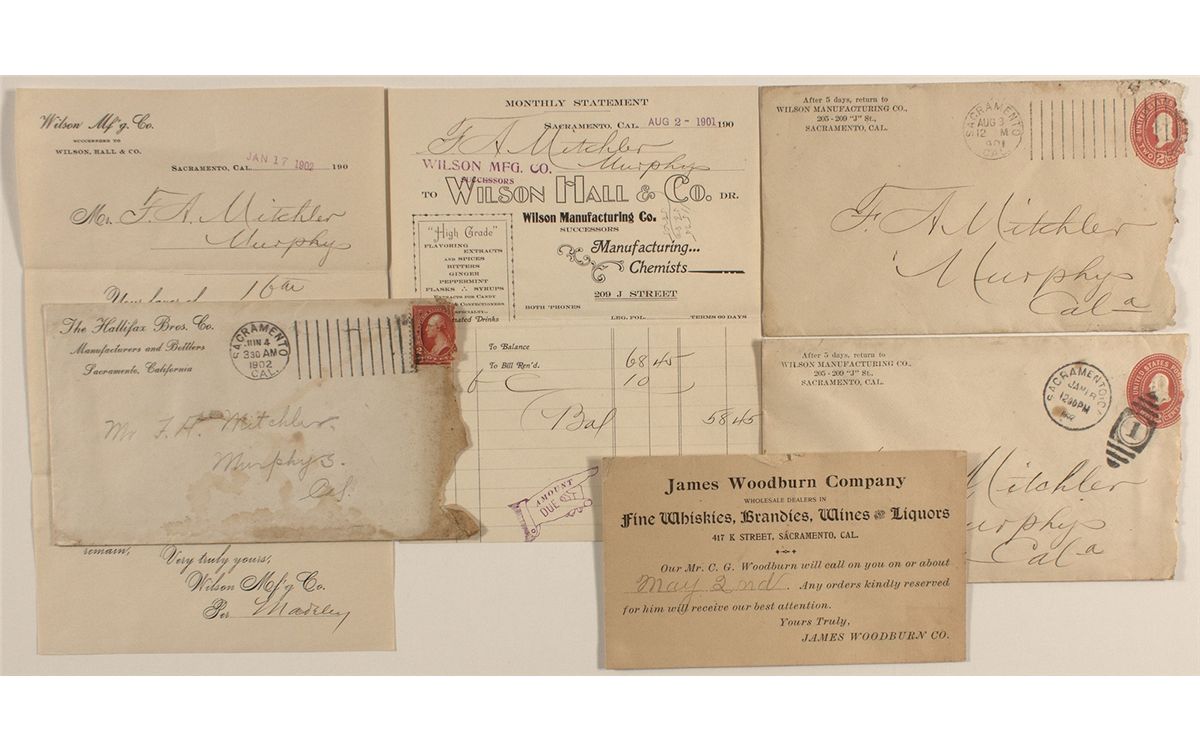 Wilson Mf'g. Co.
SUCCESSORS TO
WILSON, HALL & CO.
SACRAMENTO, CAL. JAN 17 1902 190
Mr. F. A. Mitchler
Murphys
Your favor of 16th
remain,
Very truly yours,
Wilson Mf'g Co.
Per Madeley
MONTHLY STATEMENT
SACRAMENTO, CAL. AUG 2 - 1901 190
F A Mitchler
Murphys
WILSON MFG. CO.
SUCCSSORS
TO WILSON HALL & CO. DR.
Wilson Manufacturing Co.
SUCCESSORS
Manufacturing...
Chemists
209 J STREET
"High Grade"
FLAVORING
EXTRACTS
AND SPICES
BITTERS
GINGER
PEPPERMINT
FLASKS SYRUPS
EXTRACTS FOR CANDY
& CONFECTIONERS
SPECIALTY
Drinks
BOTH 'PHONES
LEG. FOL.
TERMS 60 DAYS
To Balance
To Bill Ren'd. 68 45
10
Bal 58 45
AMOUNT
DUE
The Hallifax Bros. Co.
Manufacturers and Bottlers
Sacramento, California
SACRAMENTO
JUN 4
3 30 AM
1902
CAL.
Mr F. A. Mitchler.
Murphys.
Cal.
After 5 days, return to
WILSON MANUFACTURING CO.,
205-209 "J" St.,
SACRAMENTO, CAL.
SACRAMENTO
AUG 3
12 M
1901
CAL.
UNITED STATES
TWO
F A Mitchler
Murphys
Cala
After 5 days, return to
WILSON MANUFACTURING CO.,
205-209 "J" St.,
SACRAMENTO, CAL.
SACRAMENTO, CA
JAN
12 30 PM
1902
1
UNITED STATES
Mitchler
Murphys
Cala
James Woodburn Company
WHOLESALE DEALERS IN
Fine Whiskies, Brandies, Wines and Liquors
417 K STREET, SACRAMENTO, CAL.
Our Mr. C. G. Woodburn will call on you on or about
May 2nd. Any orders kindly reserved
for him will receive our best attention.
Yours Truly,
JAMES WOODBURN CO.